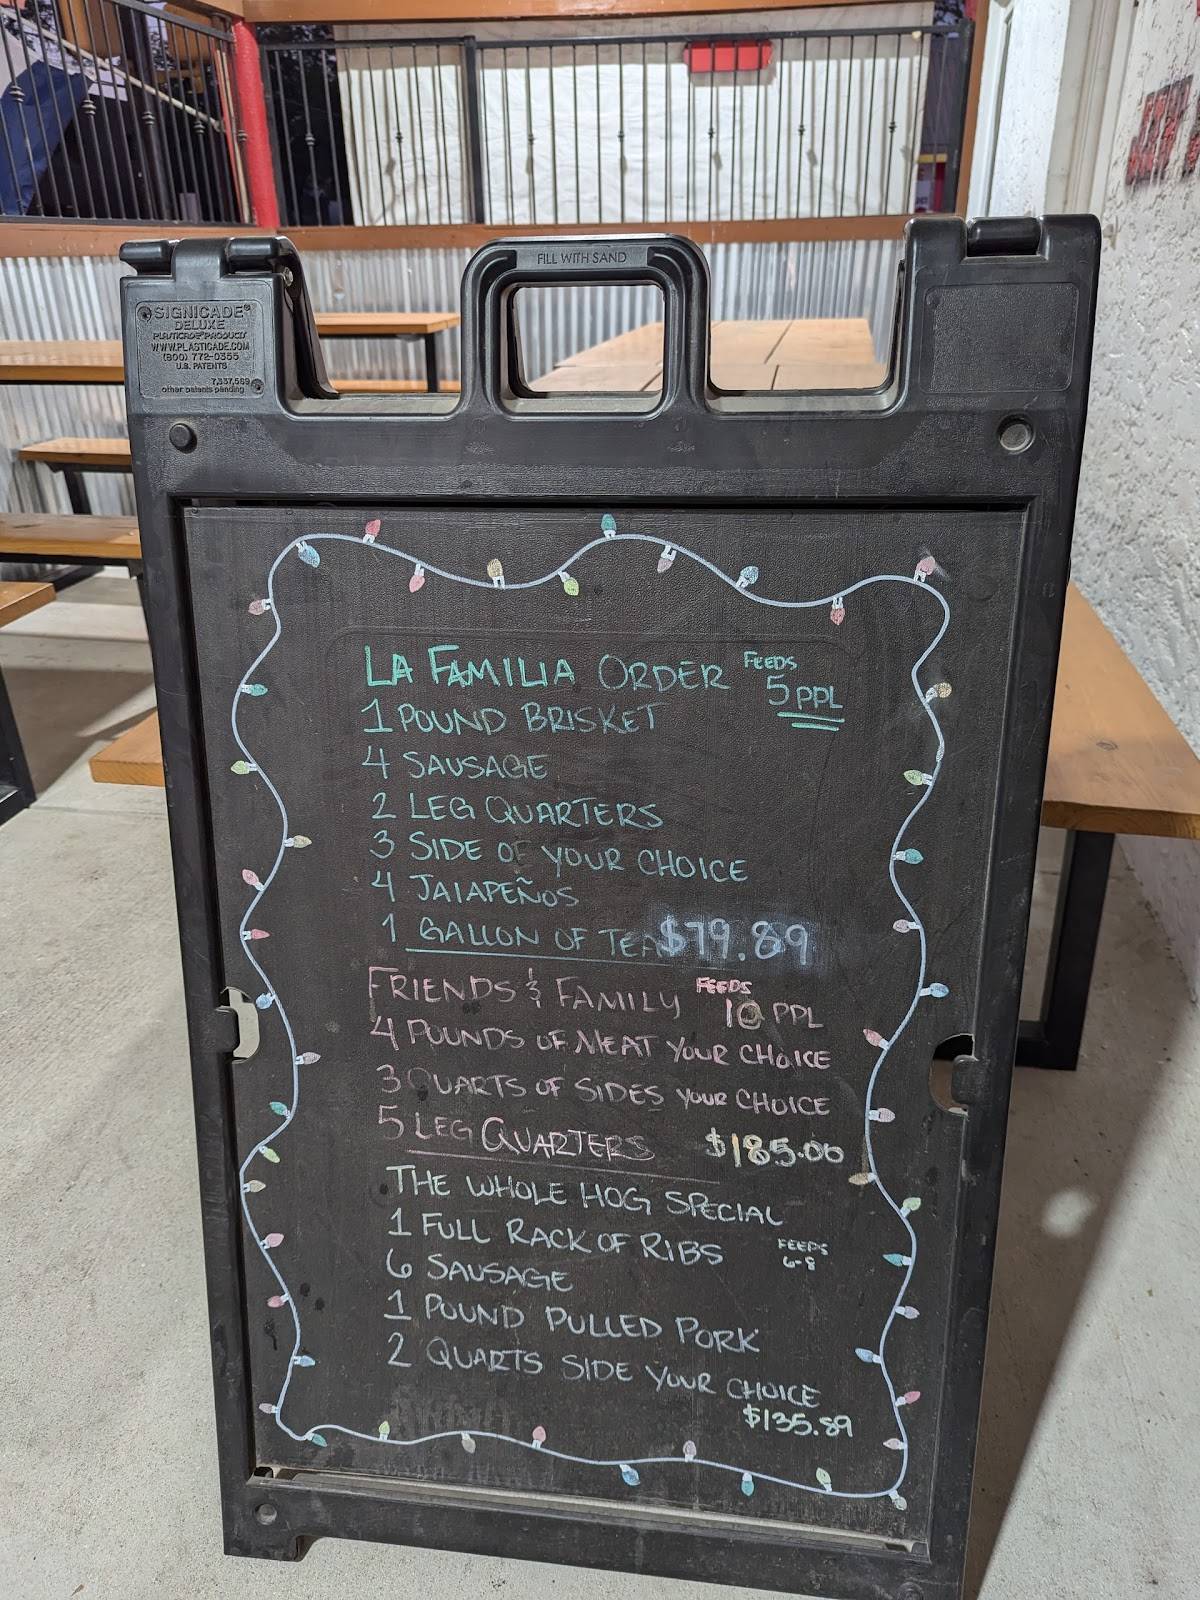 FILL WITH SAND
SIGNICADE®
DELUXE
PLASTICADE® PRODUCTS
WWW.PLASTICADE.COM
(800) 772-0355
U.S. PATENTS
7,337,569
other patents pending
LA FAMILIA ORDER FEEDS 5 PPL
1 POUND BRISKET
4 SAUSAGE
2 LEG QUARTERS
3 SIDE OF YOUR CHOICE
4 JAlAPEÑOS
1 GALLON OF TEA $79.89
FRIENDS & FAMILY FEEDS 10 PPL
4 POUNDS OF MEAT YOUR CHOICE
3 QUARTS OF SIDES YOUR CHOICE
5 LEG QUARTERS $185.00
THE WHOLE HOG SPECIAL
1 FULL RACK OF RIBS FEEDS 6-8
6 SAUSAGE
1 POUND PULLED PORK
2 QUARTS SIDE YOUR CHOICE
$135.89